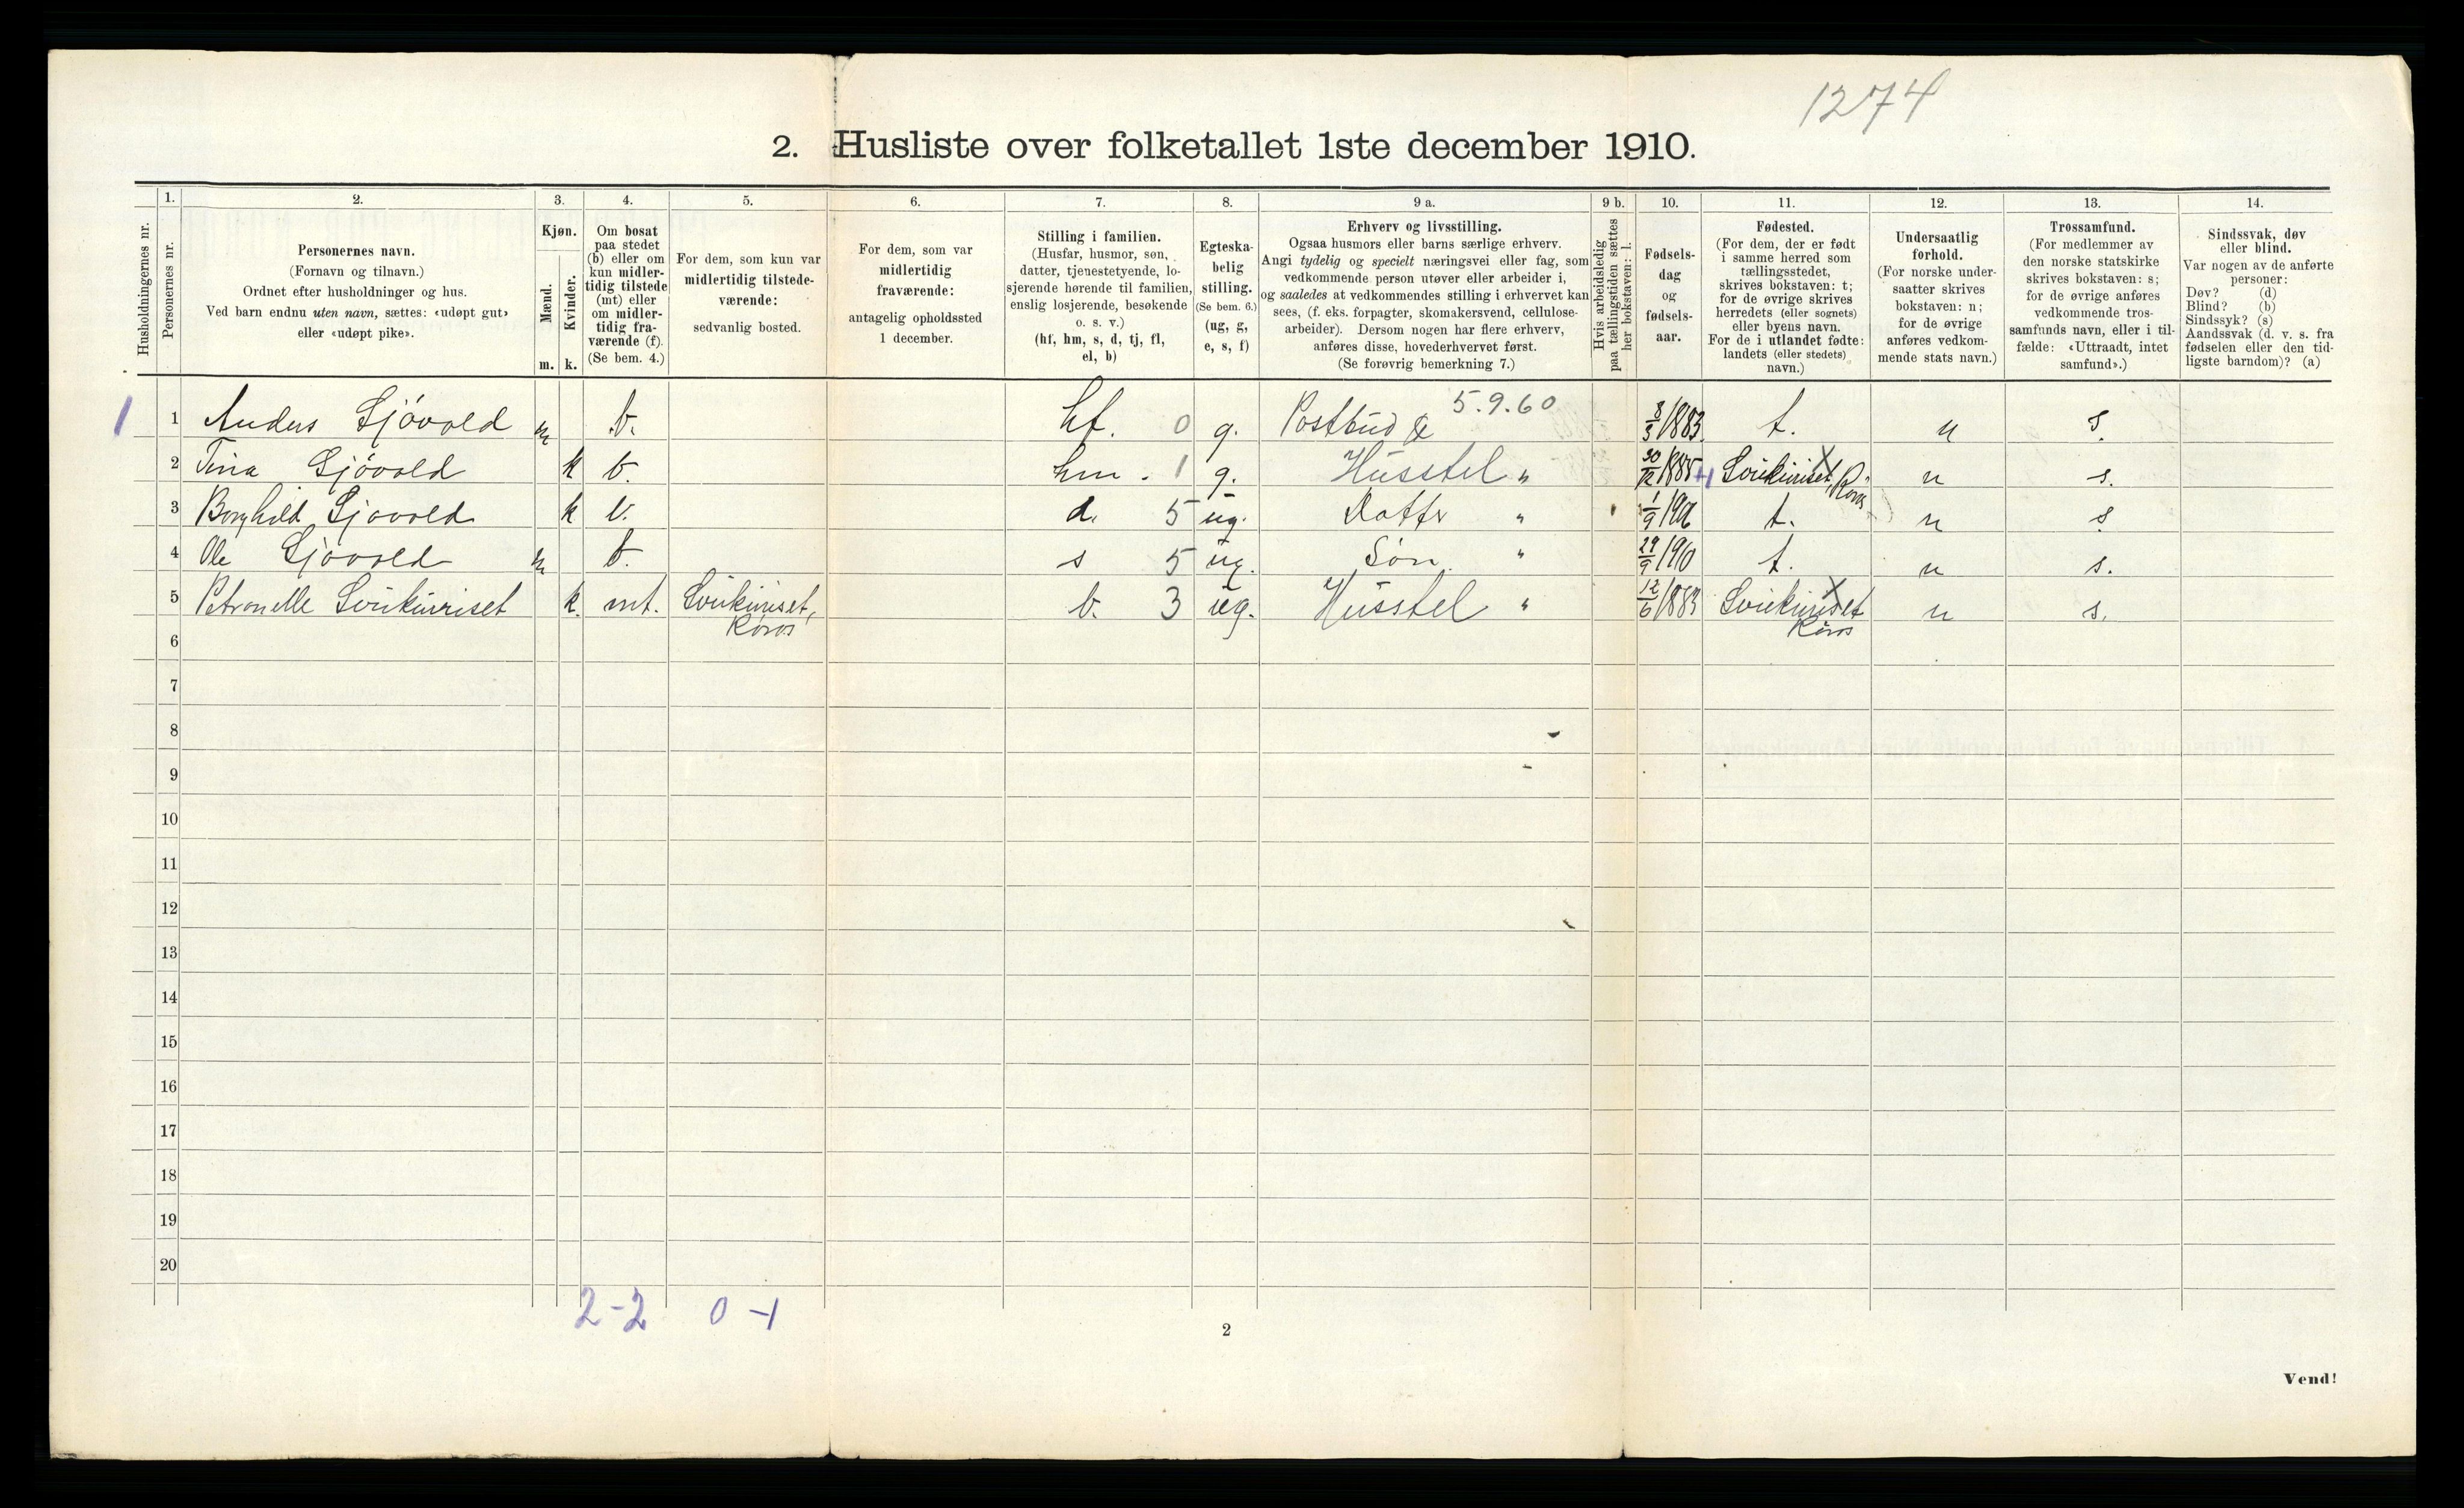 1274
2. Husliste over folketallet 1ste december 1910.
Husholdningernes nr.
1.
Personernes nr.
2.
Personernes navn.
(Fornavn og tilnavn.)
Ordnet efter husholdninger og hus.
Ved barn endnu uten navn, sættes: «udøpt gut»
eller «udøpt pike».
3.
Kjøn.
Mænd.
Kvinder.
m. k.
4.
Om bosat
paa stedet
(b) eller om
kun midler-
tidig tilstede
(mt) eller
om midler-
tidig fra-
værende (f).
(Se bem. 4.)
5.
For dem, som kun var
midlertidig tilstede-
værende:
sedvanlig bosted.
6.
For dem, som var
midlertidig
fraværende:
antagelig opholdssted
1 december.
7.
Stilling i familien.
(Husfar, husmor, søn,
datter, tjenestetyende, lo-
sjerende hørende til familien,
enslig losjerende, besøkende
o. s. v.)
(hf, hm, s, d, tj, fl,
el, b)
8.
Egteska-
belig
stilling.
(Se bem. 6.)
(ug, g,
e, s, f)
9 a.
Erhverv og livsstilling.
Ogsaa husmors eller barns særlige erhverv.
Angi tydelig og specielt næringsvei eller fag, som
vedkommende person utøver eller arbeider i,
og saaledes at vedkommendes stilling i erhvervet kan
sees, (f. eks. forpagter, skomakersvend, cellulose-
arbeider). Dersom nogen har flere erhverv,
anføres disse, hovederhvervet først.
(Se forøvrig bemerkning 7.)
9 b.
Hvis arbeidsledig
paa tællingstiden sættes
her bokstaven: l.
10.
Fødsels-
dag
og
fødsels-
aar.
11.
Fødested.
(For dem, der er født
i samme herred som
tællingsstedet,
skrives bokstaven: t;
for de øvrige skrives
herredets (eller sognets)
eller byens navn.
For de i utlandet fødte:
landets (eller stedets)
navn.)
12.
Undersaatlig
forhold.
(For norske under-
saatter skrives
bokstaven: n;
for de øvrige
anføres vedkom-
mende stats navn.)
13.
Trossamfund.
(For medlemmer av
den norske statskirke
skrives bokstaven: s;
for de øvrige anføres
vedkommende tros-
samfunds navn, eller i til-
fælde: «Uttraadt, intet
samfund».)
14.
Sindssvak, døv
eller blind.
Var nogen av de anførte
personer:
Døv? (d)
Blind? (b)
Sindssyk? (s)
Aandssvak (d. v. s. fra
fødselen eller den tid-
ligste barndom)? (a)
5.9.60
1 1 Anders Sjövold m b. hf. 0 g. Postbud 8/3 1883. t. n s.
2 Tina Sjövold k b. hm. 1 g. Husstel " 30/12 1885 Røros n s.
3 Borghild Sjövold k b. d. 5 ug. Datter " 1/9 1906 t. n s
4 Ole Sjövold m b. s 5 ug. Søn. " 29/9 1910 t. n s.
5 Petronelle k. mt. b. 3 ug. Husstel " 12/6 1883 n s.
Røros Røros
6
7
8
9
10
11
12
13
14
15
16
17
18
19
20
2-2 0-1
2
Vend!